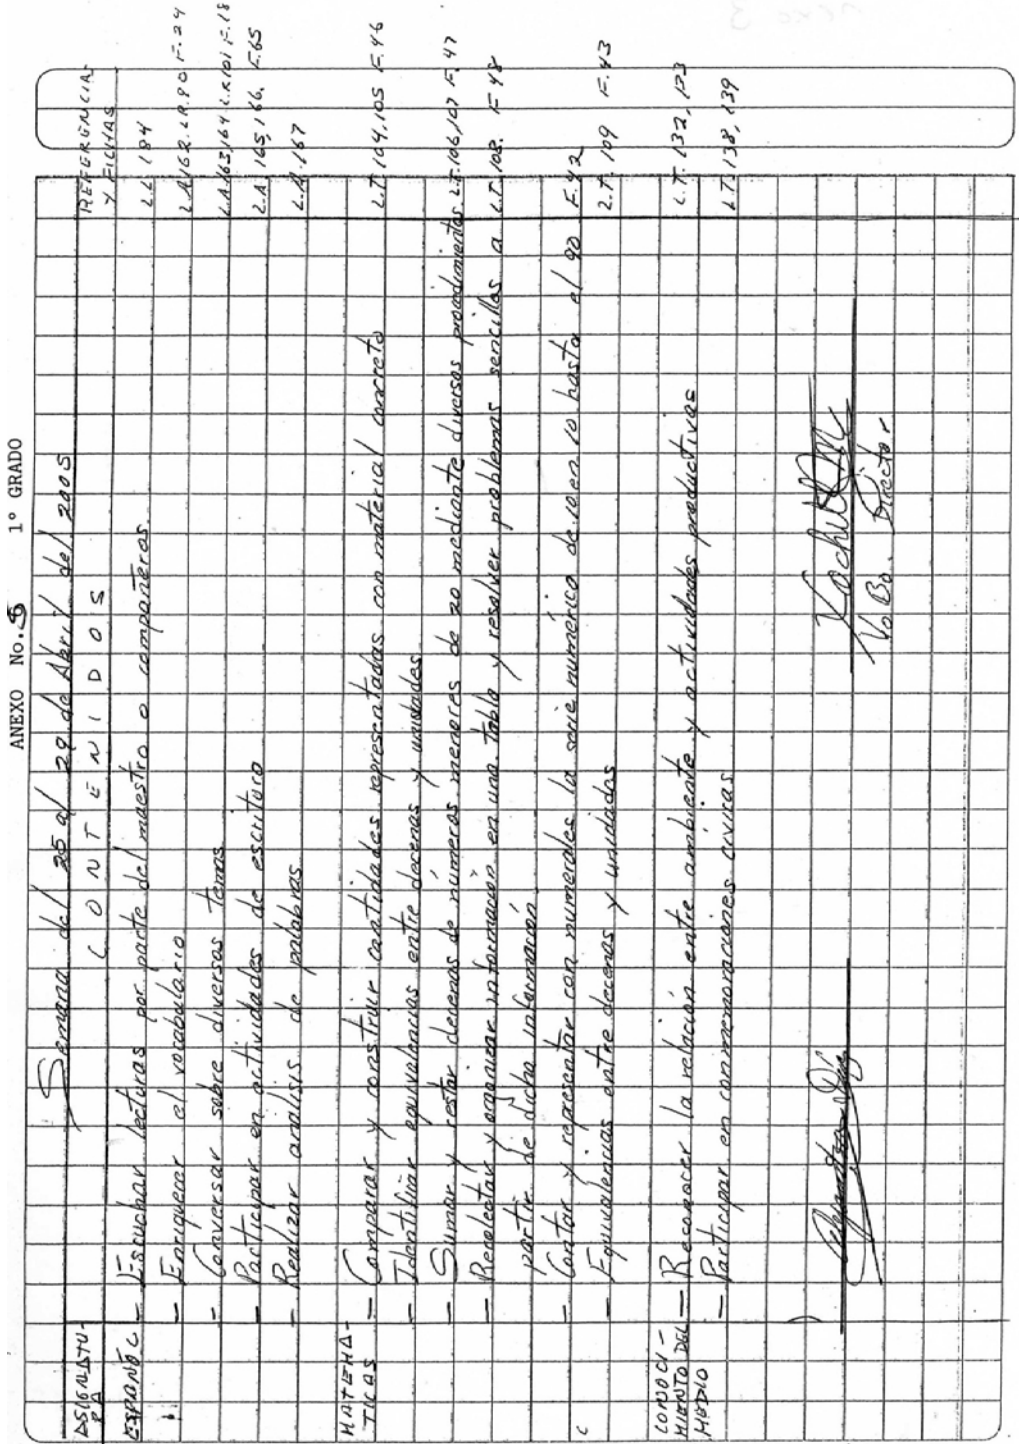 ANEXO No. 1° GRADO
Semana del 25 al 29 de Abril del 2005
ASIGNATU-
RA
CONTENIDOS
REFERENCIA
Y FICHAS
ESPAÑOL - Escuchar lecturas por parte del maestro o compañeros. L.L 184
- Enriquecer el vocabulario L.A 162. L.R. 80 F. 24
- Conversar sobre diversos temas L.A 163,164 L.R 101 F. 18
- Participar en actividades de escritura L.A. 165, 166, F.65
- Realizar analisis de palabras L.A. 167
MATEMA-
TICAS - Comparar y construir cantidades representadas con material concreto L.T. 104, 105 F. 46
- Identificar equivalencias entre decenas y unidades
- Sumar y restar decenas de números menores de 20 mediante diversos procedimientos L.T. 106,107 F. 47
- Recolectar y organizar información en una tabla y resolver problemas sencillos a L.T. 108. F 48
partir de dicha información.
- Contar y representar con numerales la serie numérica de 10 en 10 hasta el 90 F. 42
- Equivalencias entre decenas y unidades L.T. 109 F. 43
CONOCI-
MIENTO DEL
MEDIO - Reconocer la relación entre ambiente y actividades productivas L.T. 132, 133
- Participar en conmemoraciones cívicas L.T. 138, 139
Vo. Bo. Director